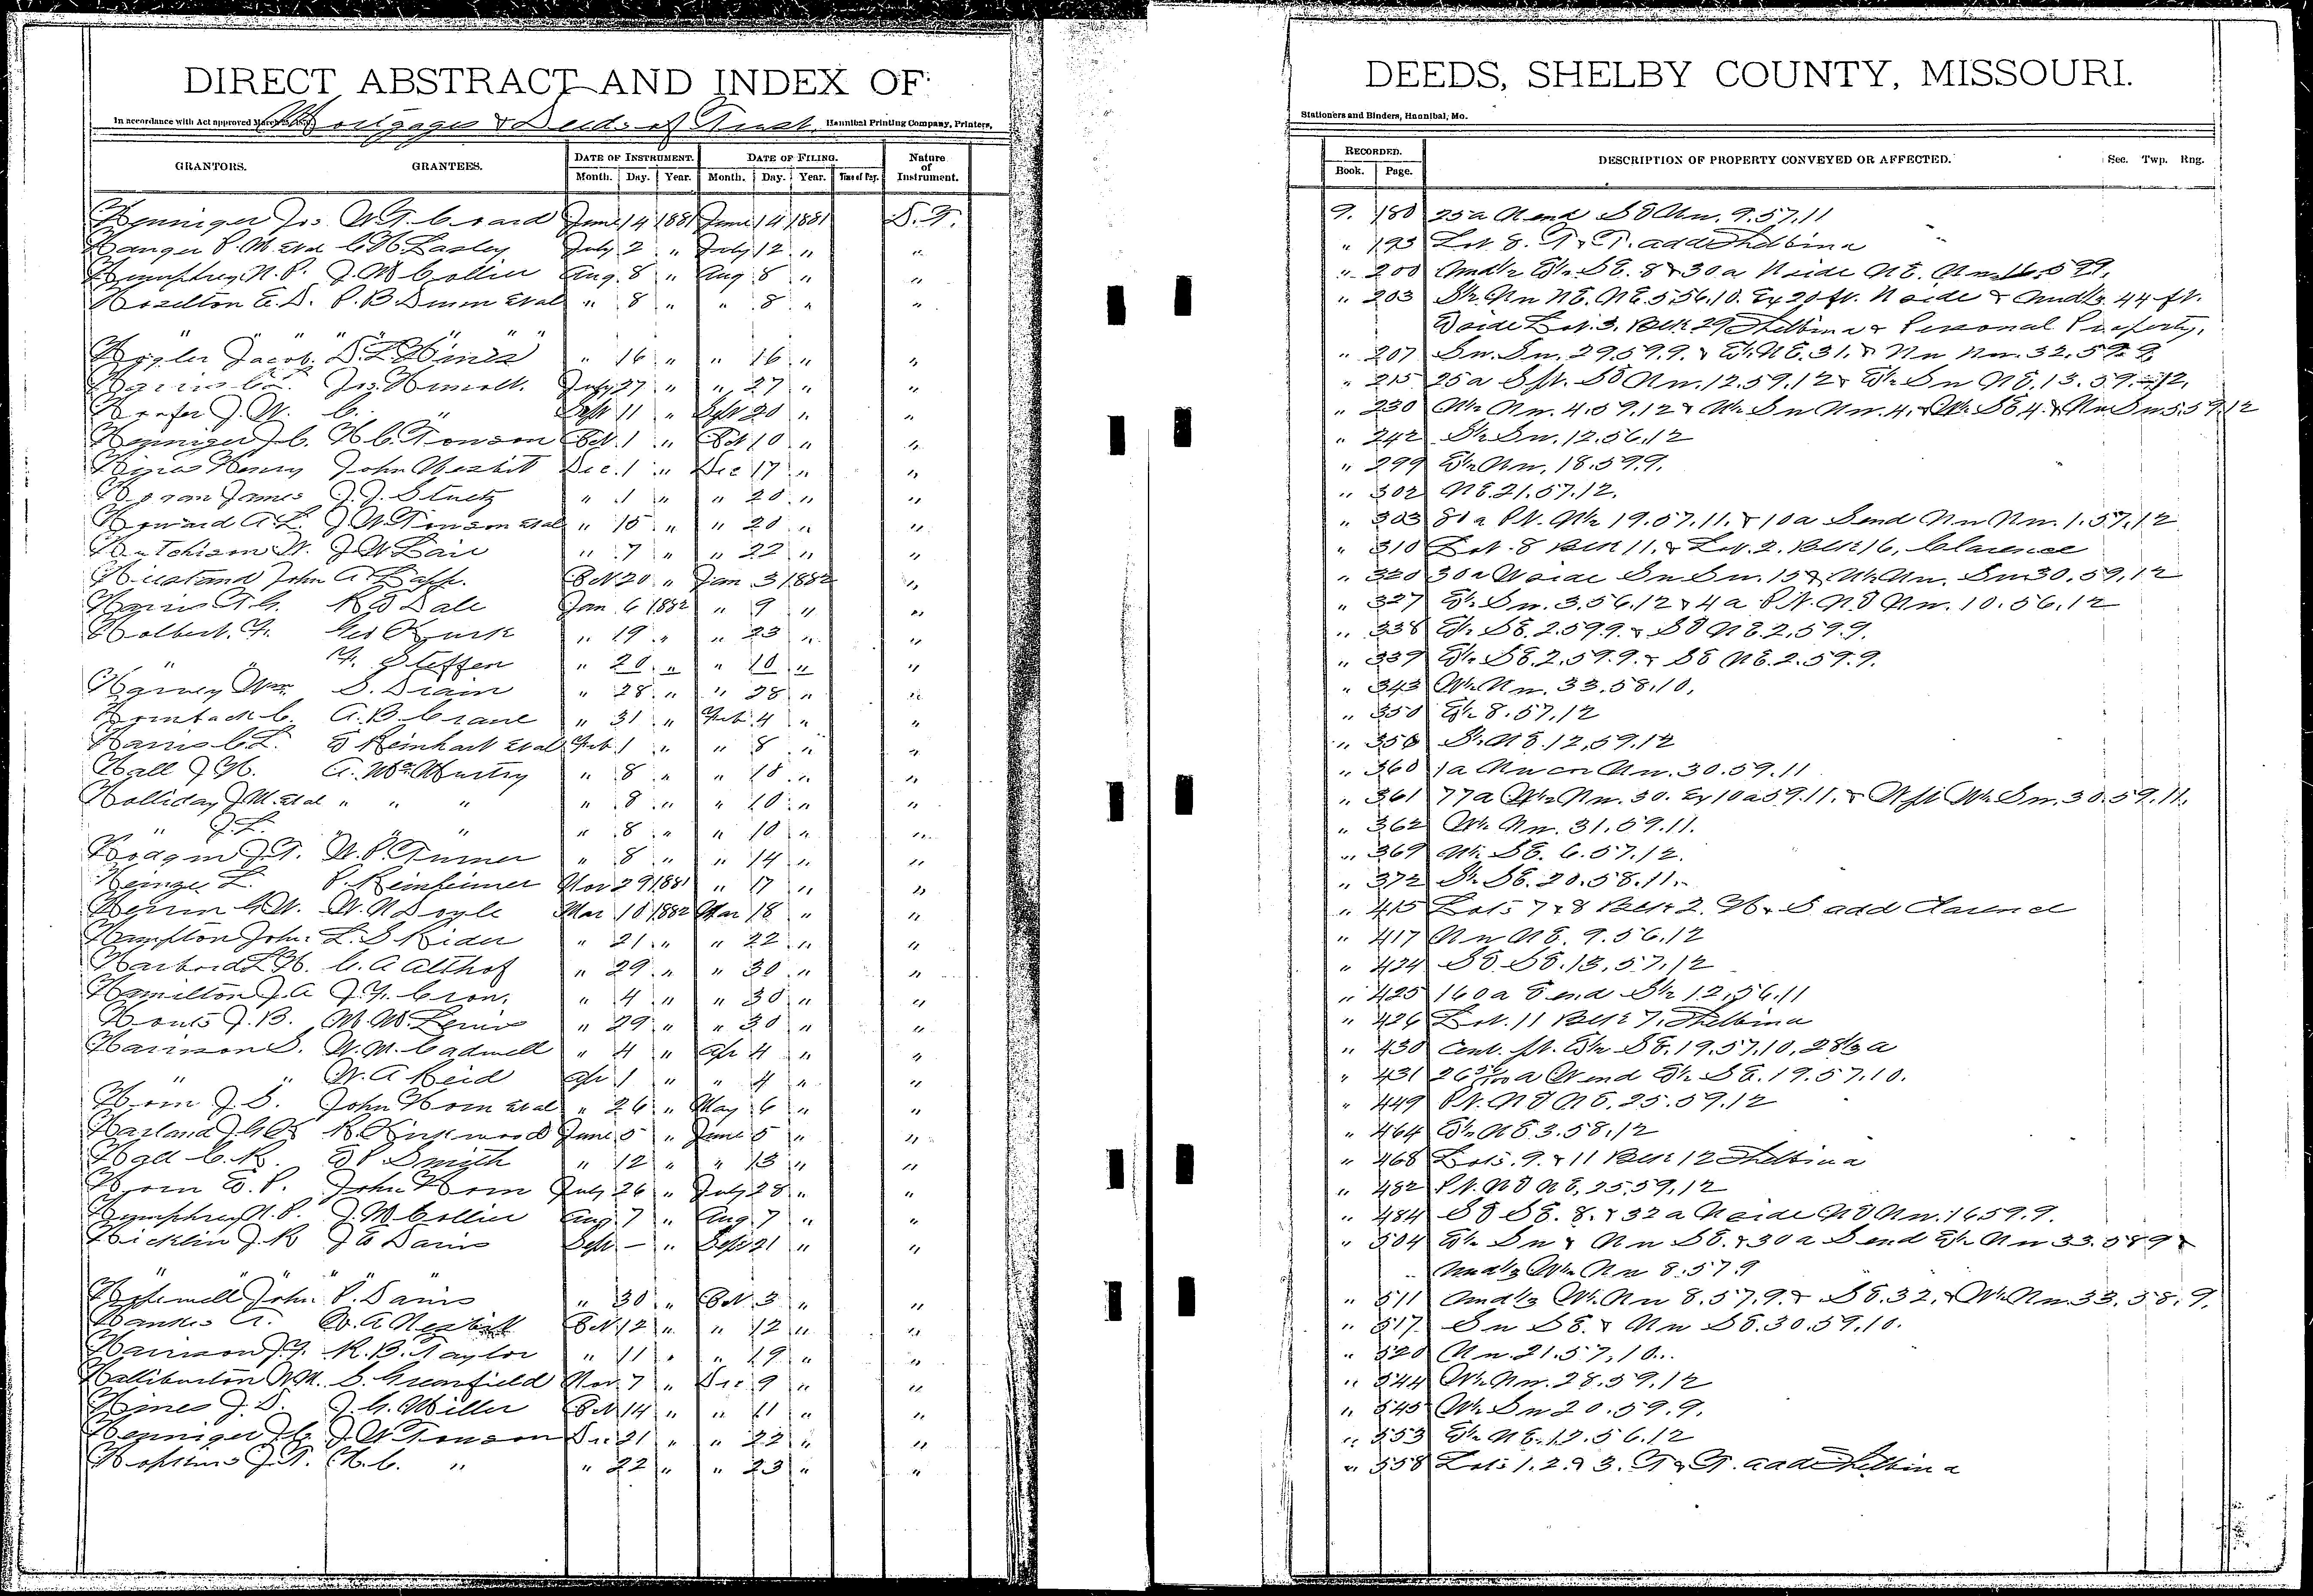 DIRECT ABSTRACT AND INDEX OF
Mortgages & Deeds of Trust
In accordance with Act approved March Hannibal Printing Company, Printers,
GRANTORS. GRANTEES. DATE OF INSTRUMENT. DATE OF FILING. Nature of Instrument.
Month. Day. Year. Month. Day. Year. Time of Day.
Henninger Jos W.T. Coard June 14 1881 June 14 1881 D.T.
Hanger P.M. et al C.H. Lasley July 2 " July 12 " "
Humphrey N.P. J.M. Collier Aug. 8 " Aug. 8 " "
Hazelton E.D. P.B. Dunn et al " 8 " " 8 " "
" " " " " " "
Jacob D.L. Hines " 16 " " 16 " "
Harris C.L. July 27 " " 27 " "
J.W. C. " Sept 11 " Sept 20 " "
Henninger J.C. H.C. Tonson Oct. 1 " Oct 10 " "
Hines Henry John Nesbit Dec. 1 " Dec 17 " "
Horan James J.J. Stuetz " 1 " " 20 " "
Howard A.L. J.W. Tonson et al " 15 " " 20 " "
Hutchison W. J.W. Lair " 7 " " 22 " "
Hiestand John A. Lapp. Oct 20 " Jan 3 1882 "
Harris A.G. R.E. Dale Jan 6 1882 " 9 " "
Holbert. F. Geo " 19 " " 23 " "
" " F. Steffen " 20 " " 10 " "
Harvey Wm. S. Drain " 28 " " 28 " "
Hornback C. A.B. Crane " 31 " Feb. 4 " "
Harris C.L. E Reinhart et al Feb. 1 " " 8 " "
Hall J.H. A. McMurtry " 8 " " 10 " "
Holliday J.M. et al " " " " 8 " " 10 " "
" J.L. " " " " 8 " " 10 " "
J.T. W.P. Turner " 8 " " 14 " "
L. P. Reinheimer Nov 29 1881 " 17 " "
Herrin G.W. W.N. Doyle Mar 10 1882 Mar 18 " "
Hampton John L.S. Rider " 21 " " 22 " "
L.H. C.A. Althof " 29 " " 30 " "
Hamilton J.A J.F. Crow, " 4 " " 30 " "
Houts J.B. M.M. Lewis " 29 " " 30 " "
Harrison S. W.M. Cadwell " 4 " Apr 4 " "
" " W.A. Reid Apr 1 " " 4 " "
Horn J.S. John Horn et al " 26 " May 6 " "
Harland R. Kirkwood June 5 " June 5 " "
Hall C.R. E P Smith " 12 " " 13 " "
Horn E.P. John Horn July 26 " July 28 " "
Humphrey N.P. J.M. Collier Aug. 7 " Aug. 7 " "
Hicklin J.R J E Davis Sept — " Sept 21 " "
" " " " "
John P. Davis " 30 " Oct. 3 " "
A. Nesbit Oct 12 " " 12 " "
Harrison J.F. R.B. Taylor " 11 " " 19 " "
Halliburton W.M. S. Greenfield Nov. 7 " Dec 9 " "
Hines J.D. J.G. Miller Oct 14 " " 11 " "
Henninger J.C. J.W. Tonson Dec 21 " " 22 " "
Hopkins J.T. H.C. " " 22 " " 23 " "
DEEDS, SHELBY COUNTY, MISSOURI.
Stationers and Binders, Hannibal, Mo.
RECORDED. DESCRIPTION OF PROPERTY CONVEYED OR AFFECTED. Sec. Twp. Rng.
Book. Page.
9. 180 25a N end SE Nw. 9.57.11
" 193 Lot. 8. T & T. add Shelbina
" 200 Und½ E½ SE. 8 & 30a N side NE. Nw 16.59 9.
" 203 S½ Nw NE. NE. 5.56.10. Ex 20 ft. N side & Und⅓ 44 ft.
W side Lot. 3. Blk 29 Shelbina & Personal Property.
" 207 Sw. Sw. 29.59.9. & E½ NE. 31. & Nw Nw. 32.59.9.
" 215 25a S pt. SE Nw. 12.59.12 & E½ Sw NE. 13.59.12.
" 230 W½ Nw. 4.59.12 & W½ Sw Nw. 4. & W½ SE 4. & Nw Sw 5.59.12
" 242 S½ Sw. 12.56.12
" 299 E½ Nw. 18.59.9.
" 302 NE. 21.57.12.
" 303 80a Pt. N½ 19.57.11. & 10a S end Nw Nw. 1.57.12
" 310 Lot. 8 Blk 11. & Lot. 2. Blk 16. Clarence
" 320 30a W side Sw Sw. 15 & N½ Nw. Sw 30.59.12
" 327 E½ Sw. 3.56.12 & 4a Pt. NE Nw. 10.56.12
" 338 E½ SE. 2.59.9. & SE NE. 2.59.9.
" 339 E½ SE. 2.59.9. & SE NE. 2.59.9.
" 343 W½ Nw. 33.58.10.
" 350 E½ 8.57.12
" 356 S½ NE. 12.59.12
" 360 1a Nw cor Nw. 30.59.11
" 361 77a W½ Nw. 30. Ex 10a 59.11. & N pt W½ Sw. 30.59.11.
" 362 W½ Nw. 31.59.11.
" 369 N½ SE. 6.57.12.
" 372 S½ SE. 20.58.11.
" 415 Lots 7 & 8 Blk 2. H & S add Clarence
" 417 Nw NE. 9.56.12
" 424 SE. SE. 13.57.12
" 425 160a E end S½ 12.56.11
" 426 Lot. 11 Blk 7. Shelbina
" 430 Cent. pt. E½ SE. 19.57.10. 28⅓ a
" 431 a N end E½ SE. 19.57.10.
" 449 Pt. NE NE. 25.59.12
" 464 E½ NE 3.58.12
" 468 Lots. 9. & 11 Blk 12 Shelbina
" 482 Pt. NE NE. 25.59.12
" 484 SE SE. 8. & 32a N side NE Nw. 16 59.9.
" 504 E½ Sw & Nw SE. & 30a S end E½ Nw 33.58 9 &
Und⅓ W½ Nw 8.57.9
" 511 Und⅓ W½ Nw 8.57.9. & SE. 32. & W½ Nw 33.58.9.
" 517 Sw SE. & Nw SE. 30.59.10.
" 520 Nw. 21.57.10.
" 544 W½ Nw. 28.59.12
" 545 W½ Sw 20.59.9.
" 553 E½ NE. 12.56.12
" 558 Lots 1.2.& 3. T & T. add Shelbina